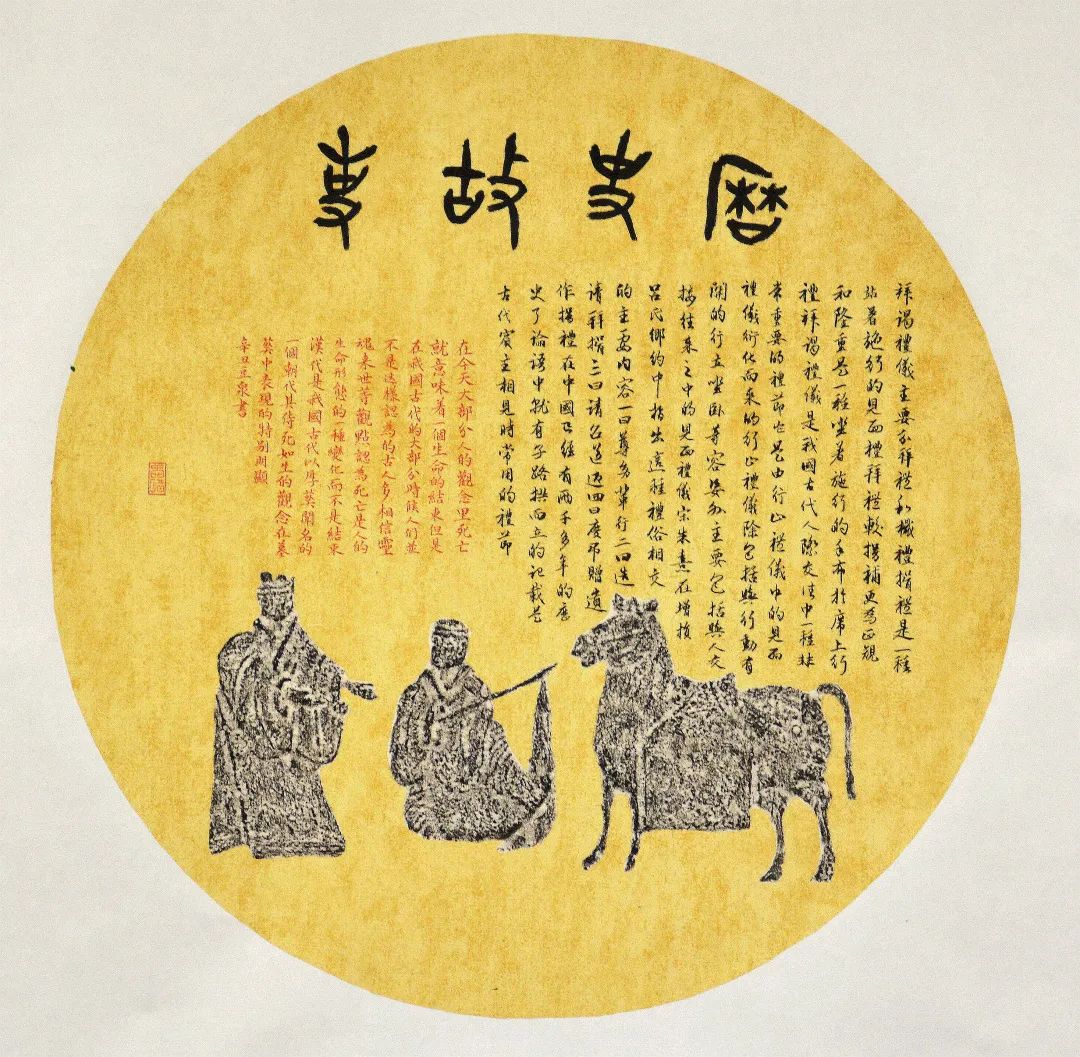 曆史故事
拜謁禮儀主要分拜禮和檝禮揖禮是一種
站着施行的見面禮拜禮較揖補更為正規
和隆重是一種坐着施行的手布於席上行
禮拜謁禮儀是我國古代人際交往中一種非
常重要的禮節也是由行止禮儀中的見面
禮儀衍化而來的行止禮儀除包括與行動有
關的行立坐卧等容姿外主要包括與人交
接往來之中的見面禮儀宋朱熹在增損
呂氏鄉約中指出這種禮俗相交
的主要内容一曰尊多輩行二曰造
請拜揖三曰請召送迎四曰慶弔贈遺
作揖禮在中國已經有兩千多年的歷
史了論語中就有子路拱而立的記載是
古代賓主相見時常用的禮節
在今天大部分人的觀念里死亡
就意味着一個生命的結束但是
在我國古代的大部分時候人們並
不是這樣認為的古人多相信靈
魂来世等觀點認為死亡是人的
生命形態的一種變化而不是結束
漢代是我國古代以厚葬聞名的
一個朝代其侍死如生的觀念在墓
葬中表現的特别明顯
辛丑泉書